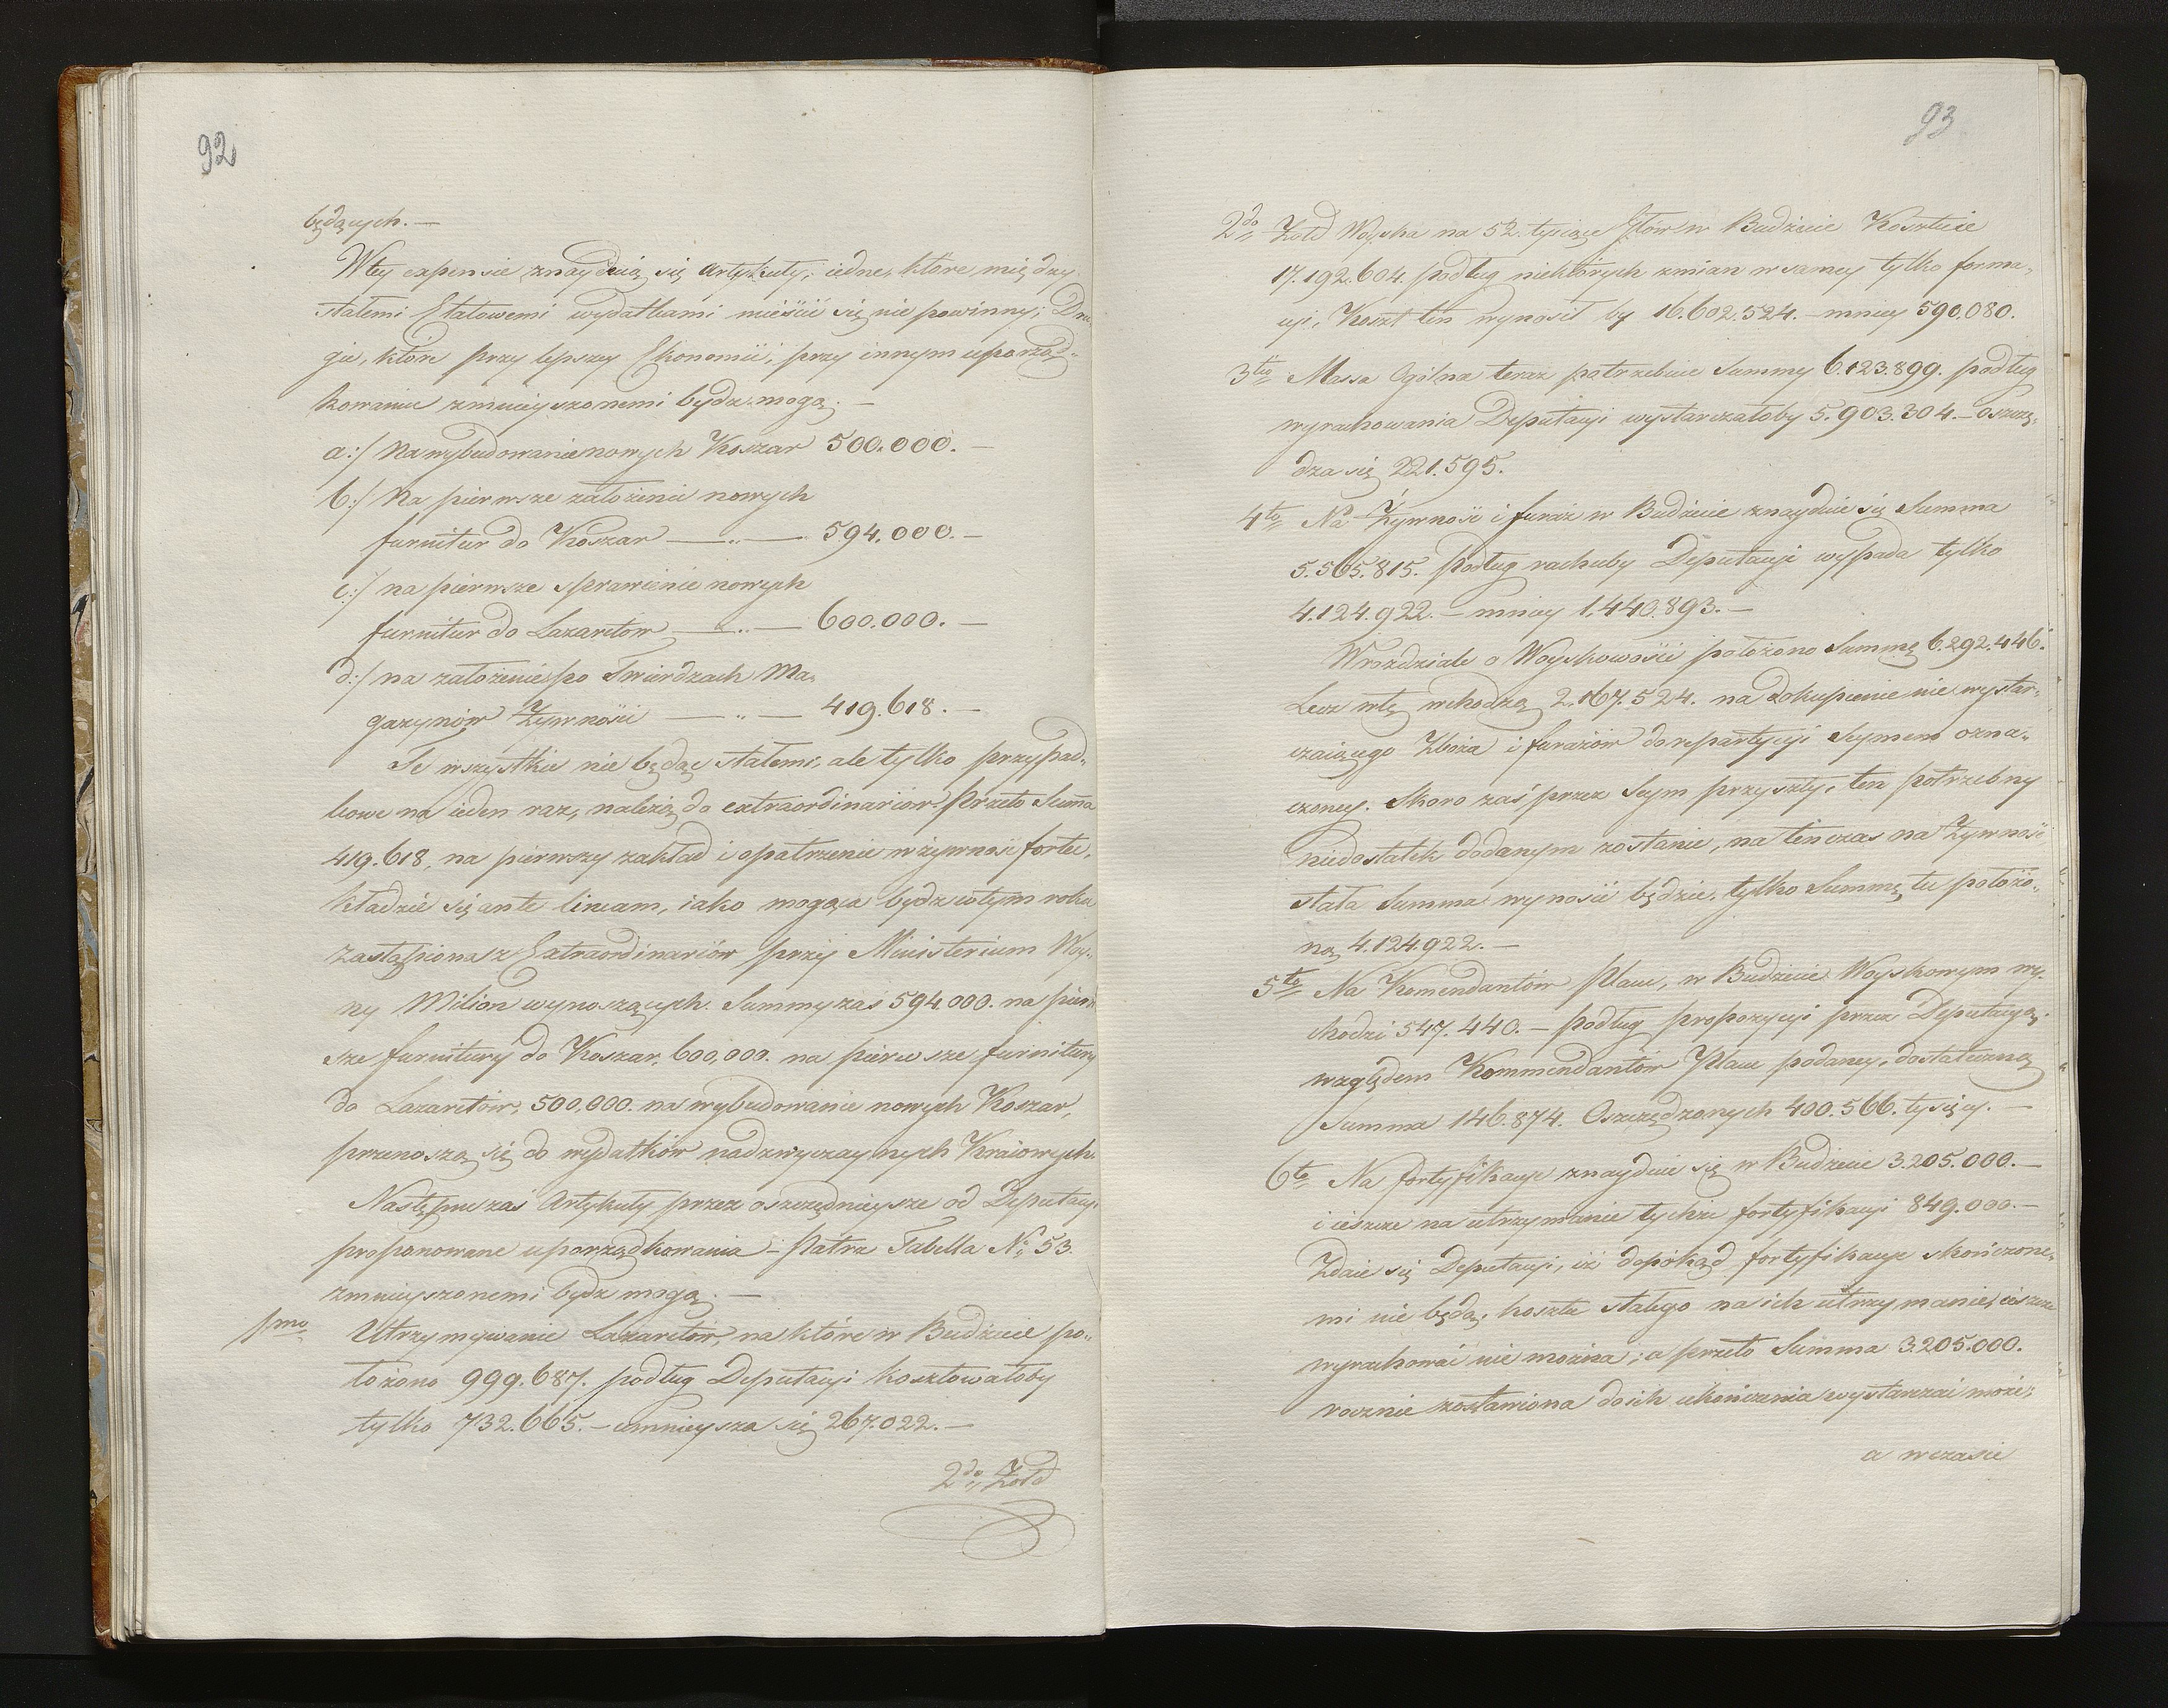 92
będących. —
W tey expensie znayduią się Artykuły; iedne, które między
stałemi Etatowemi wydatkami mieścić się nie powinny; Dru-
gie, które przy lepszey Ekonomii, przy innym uporząd-
kowaniu zmnieyszonemi bydz mogą. —
a:/ Na wybudowanie nowych Koszar 500.000. —
b:/ Na pierwsze założenie nowych
furnitur do Koszar — „ — 594.000. —
c:/ na pierwsze sprawienie nowych
furnitur do Lazaretow — „ — 600.000. —
d:/ na założenie po Twierdzach Ma-
gazynów Żywności — „ — 419.618. —
Te wszystkie nie będąc stałemi, ale tylko przypad-
kowe na ieden raz, należą do extraordinariów. Przeto Summa
419.618, na pierwszy zakład i opatrzenie w żywność fortec,
kładzie się ante lineam, iako mogąca bydz w tym roku
zastąpiona z Extraordinariów przy Ministerium Woy-
ny Milion wynoszących. Summy zaś 594.000. na pierw-
sze furnitury do Koszar, 600,000. na pierwsze furnitury
do Lazaretow, 500,000. na wybudowanie nowych Koszar,
przenoszą się do wydatków nadzwyczaynych Kraiowych.
Następne zaś Artykuły przez oszczędnieysze od Deputacyi
proponowane uporządkowania — Patrz Tabella No 53.
zmnieyszonemi bydz mogą. —
1mo Utrzymywanie Lazaretów, na które w Budżecie po-
łożono 999.687. podług Deputacyi kosztowałoby
tylko 732.665. — umnieysza się 267.022. —
2do Żołd
93
2do Żołd Woyska na 52. tysiące głów w Budżecie Kosztuie
17.192.604. podług niektórych zmian w samey tylko forma-
cyi, Koszt ten wynosił by 16.602.524. — mniey 590.080.
3tio Massa Ogólna teraz potrzebuie Summy 6.123.899. podług
wyrachowania Deputacyi wystarczałoby 5.903.304. — oszczę-
dza się 221.595.
4to Na Żywność i furaż w Budżecie znayduie się Summa
5.565.815. Podług rachuby Deputacyi wypada tylko
4.124.922. — mniey 1.440.893. —
W rozdziale o Woyskowości położono Summę 6.292.446.
Lecz w tę wchodzą 2.167.524. na dokupienie nie wystar-
czaiącego Zboża i furażów do repartycyi Seymem ozna-
czoney. Skoro zaś przez Seym przyszły, ten potrzebny
niedostatek dodanym zostanie, na ten czas na Żywność
stała Summa wynosić będzie, tylko Summę tu położo-
ną 4.124.922. —
5to Na Komendantów Placu, w Budżecie Woyskowym wy-
chodzi 547.440. — podług propozycyi przez Deputacyą
względem Kommendantów Placu podaney, dostateczną
Summa 146.874. Oszczędzonych 400.566. tysięcy. —
6to Na fortyfikacye znayduie się w Budżecie 3.205.000. —
i ieszcze na utrzymanie tychże fortyfikacyi 849.000. —
Zdaie się Deputacyi, iż dopókąd fortyfikacye skończone-
mi nie będą, kosztu stałego na ich utrzymanie, ieszcze
wyrachować nie można; a przeto Summa 3.205.000.
rocznie zostawiona do ich ukończenia wystarczać może:
a w czasie